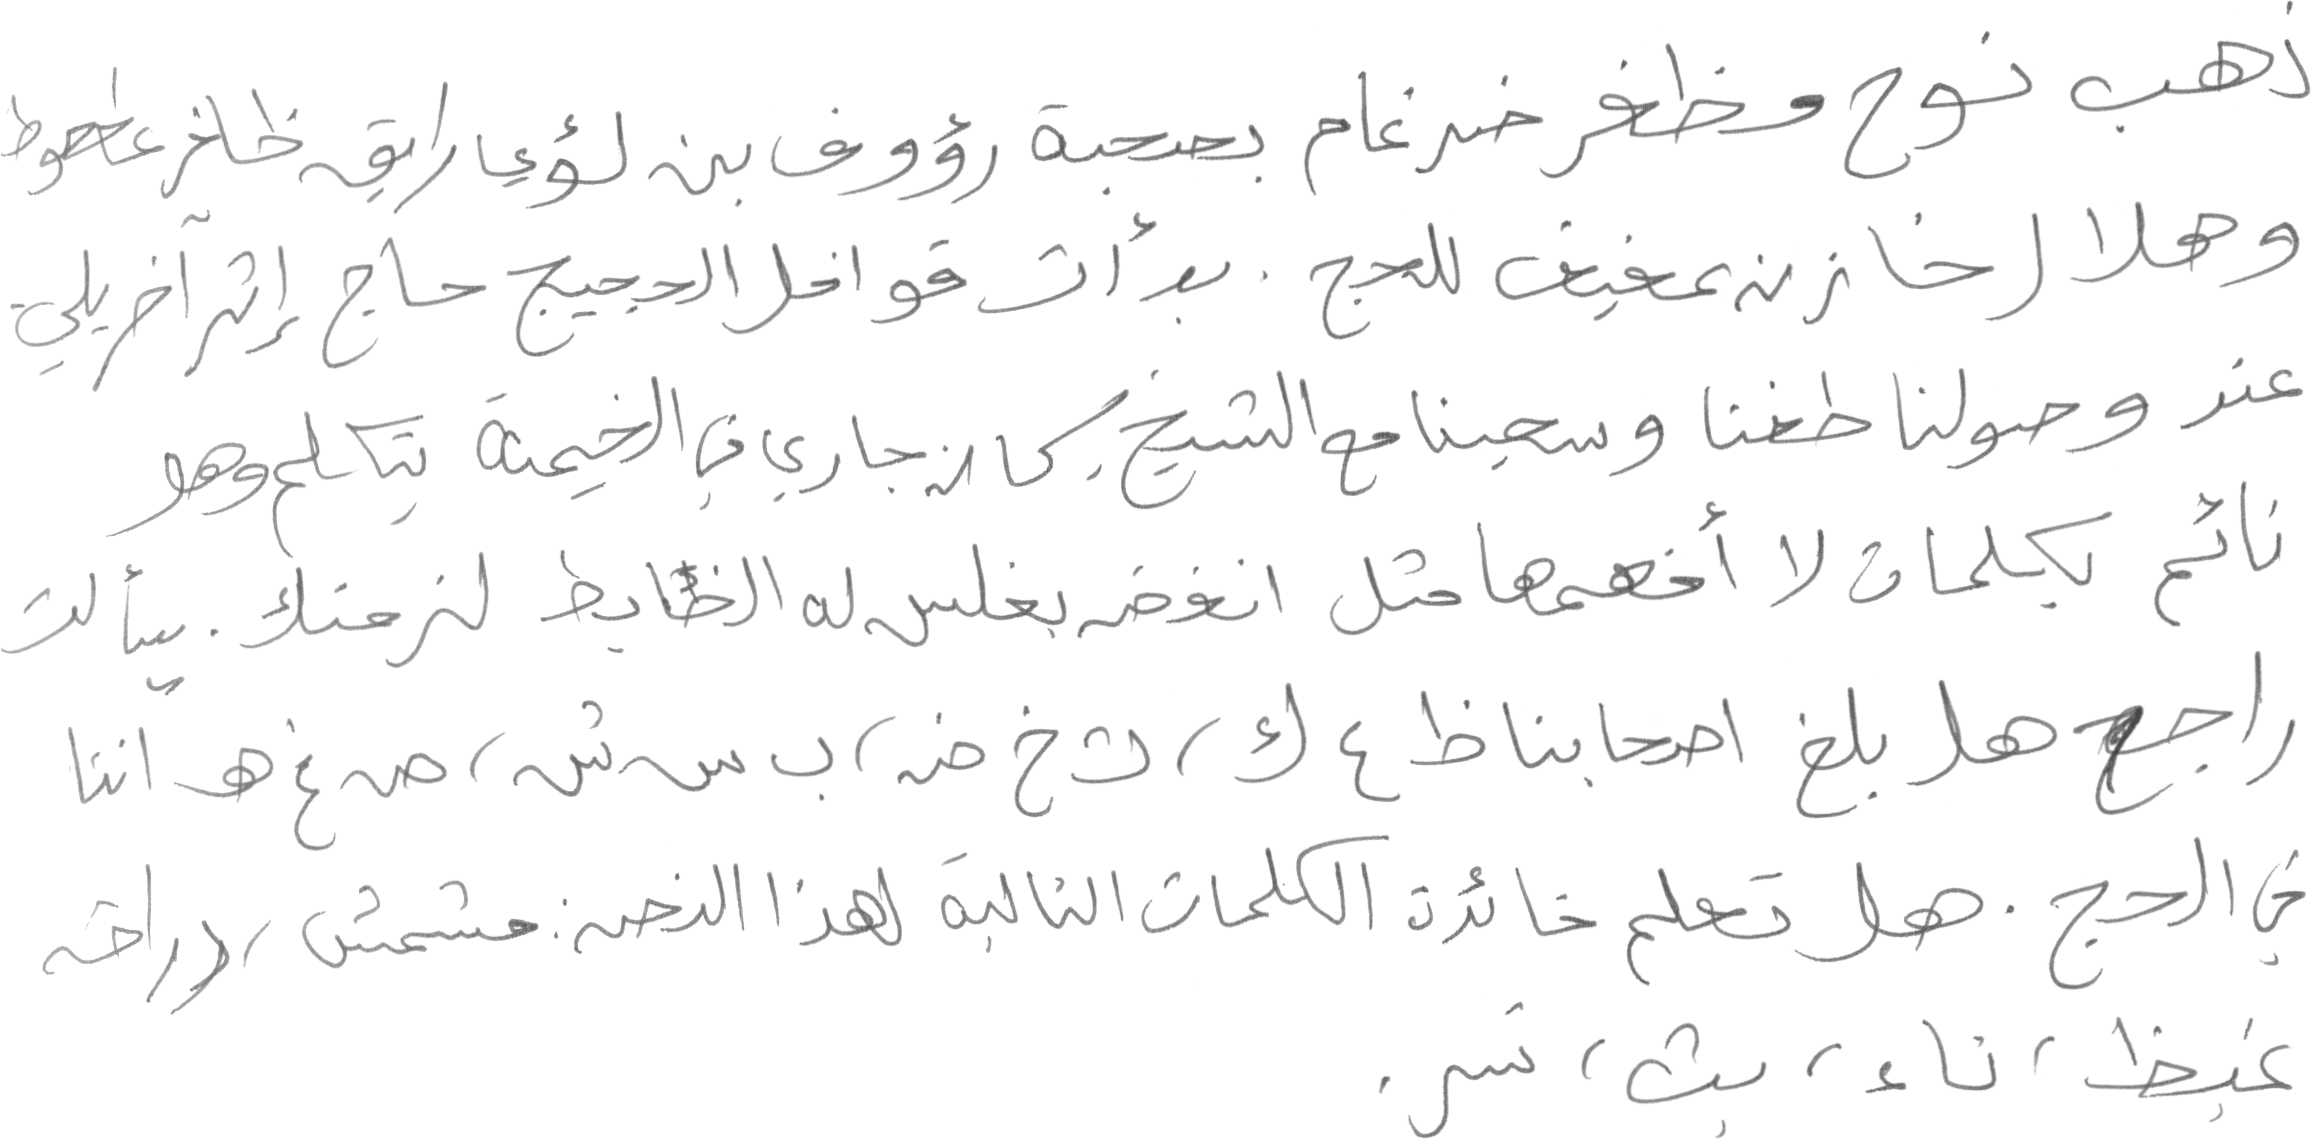 ذهب نوح وظافر ضرغام بصحبة رؤوف بن لؤي رايق ظافر عطعوط
وهلال خازن عفيف للحج . بدأت قوافل الحجيج حاج إثر آخر يلي
عند وصولنا طفنا وسعينا مع الشيخ . كان جاري في الخيمة يتكلم وهو
نائم بكلمات لا أفهمها مثل انغض بغلس له الظابط لنزعنك . سألت
راجح هل بلغ اصحابنا ظ ع ك ، ث خ ض ، ب س ش ، ص غ هـ اننا
في الحج . هل تعلم فائدة الكلمات التالية لهذا النص : مشمش ، دراق
غيظ ، ناء ، بث ، تس .